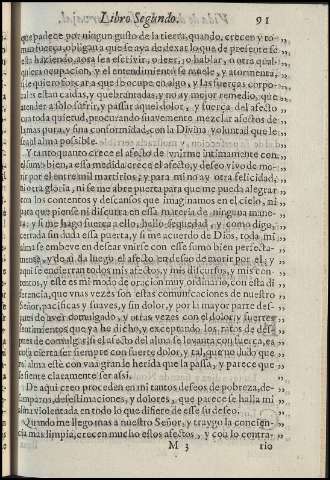 Libro Segundo. 91
que padece por ningun gusto de la tierra, quando, crecen y to-
man fuerça, obligan a que se aya de dexar lo que de presente se
està haziendo, aora sea escrivir, o leer, o hablar, o otra qual-
quiera ocupacion, y el entendimiento se muele, y atormenta,
si le quiero forçar a que se ocupe en algo, y las fuerças corpo-
rales estàn caidas, y quebrantadas, y no ay mejor remedio, que
atender a solo sufrir, y passar aquel dolor, y fuerça del afecto
con toda quietud, procurando suavemente mezclar afectos de
summa pura, y fina conformidad, con la Divina voluntad que le
sea al alma possible.
Y tanto quanto crece el afecto de vnirme intimamente con
el sumo bien, a essa medida crece el afecto, y deseo vivo de mo-
rir por el entre mil martirios; y para mi no ay otra felicidad,
ni otra gloria, ni se me abre puerta para que me pueda alegrar
con los contentos y descansos que imaginamos en el cielo, ni
para que piense ni discurra en essa materia de ninguna mane-
ra; y si me hago fuerça a ello, hallo sequedad, y como digo,
cerrada su dada essa puerta, y si me acuerdo de Dios, todo mi
alma se embeve en desear vnirse con esse sumo bien perfecta-
mente, y de aì da luego el afecto en deseo de morir por el; y
aqui se encierran todos mis afectos, y mis discursos, y mis con-
tentos, y este es mi modo de oracion muy ordinario, con esta di-
ferencia, que vnas vezes son estas comunicaciones de nuestro
Señor, pacificas y suaves, y sin dolor, y por la mayor parte des-
pues de aver comulgado, y otras vezes con el dolor y fuertes
sentimientos que ya he dicho, y exceptando los ratos de des-
pues de comulgar si el afecto del alma se levanta con fuerça, es
cosa cierta ser siempre con fuerte dolor, y tal, que no dudo que
mi alma estè con vna grande herida que la passa, y parece que
siente claramente ser assi.
De aqui creo proceden en mi tantos deseos de pobreza, de-
samparos, desestimaciones, y dolores, que parece se halla mi
alma violentada en todo lo que difiere de esse su deseo.
Quando me llego mas a nuestro Señor, y traygo la concien-
cia mas limpia, crecen mucho estos afectos, y con lo contra-
M 3 rio